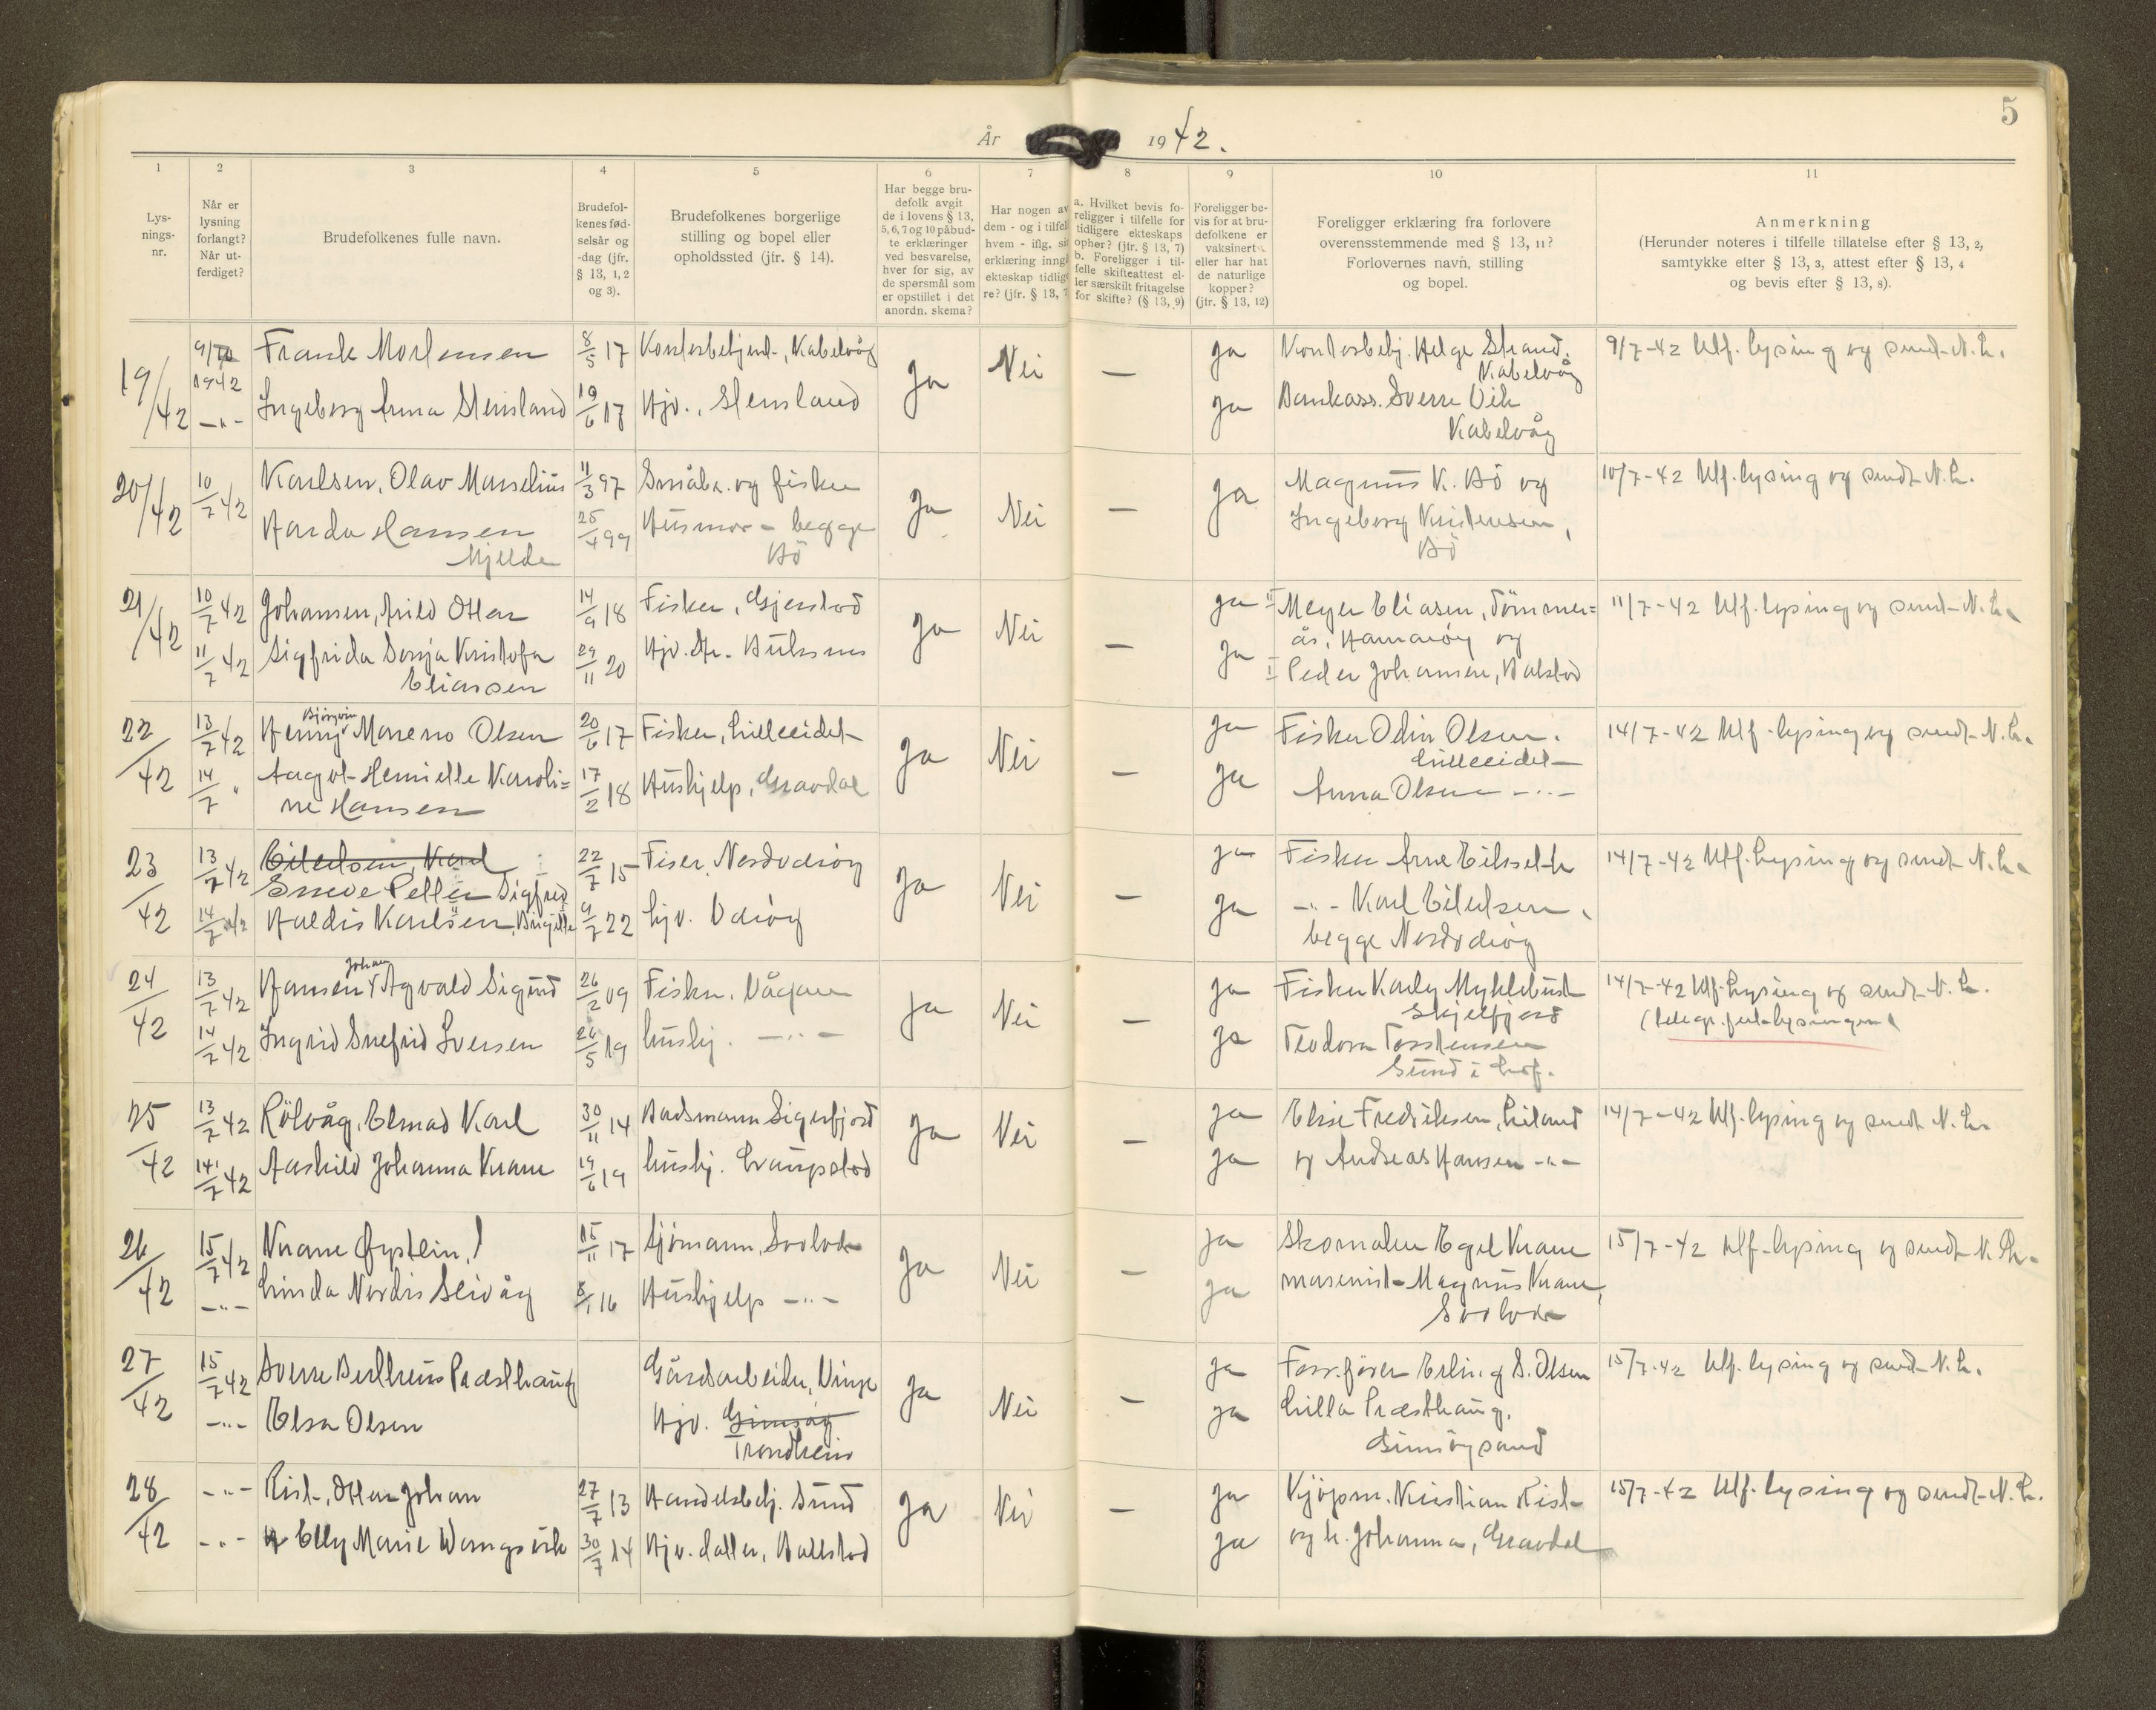 5
År 1942.
1 2 3 4 5 6 7 8 9 10 11
Lysningsnr.
Når er lysning forlangt? Når utferdiget?
Brudefolkenes fulle navn.
Brudefolkenes fødselsår og -dag (jfr. § 13, 1, 2 og 3).
Brudefolkenes borgerlige stilling og bopel eller opholdssted (jfr. § 14).
Har begge brudefolk avgit de i lovens § 13, 5, 6, 7 og 10 påbudte erklæringer ved besvarelse, hver for sig, av de spørsmål som er opstillet i det anordn. skema?
Har nogen av dem - og i tilfel hvem - iflg. si erklæring inngå ekteskap tidlige re? (jfr. § 13, 7
a. Hvilket bevis foreligger i tilfelle for tidligere ekteskaps opher? (jfr. § 13, 7) b. Foreligger i tilfelle skifteattest eller særskilt fritagelse for skifte? (§ 13, 9)
Foreligger bevis for at brudefolkene er vaksinert eller har hat de naturlige kopper? (jfr. § 13, 12)
Foreligger erklæring fra forlovere overensstemmende med § 13, 11? Forlovernes navn, stilling og bopel.
Anmerkning (Herunder noteres i tilfelle tillatelse efter § 13, 2, samtykke efter § 13, 3, attest efter § 13, 4 og bevis efter § 13, 8).
19/42 9/7 1942 Frank Mortensen 8/5 17 Kontorbetjent, Kabelvåg Ja Nei — Ja Kontorbetj. Helge Strand, Kabelvåg 9/7-42 Utf. lysing og sendt N.L.
—"— Ingeborg Anna Steinsland 19/6 17 Hjv., Ja Bankass. Sverre Vik Kabelvåg
20/42 10/7 42 Karlsen, Olav Marselius 11/3 97 Småbr. og fisker Ja Nei — Ja Magnus K. Bö og 10/7-42 Utf. lysing og sendt N.L.
Hansen 25/4 99 Husmor - begge Bö Ingeborg Kristensen, Bö
Mjelde
21/42 10/7 42 Johansen, Arild Ottar 14/9 18 Fisker, Ja Nei — Ja II Meyer Eliasen, Tömmerås, Hamaröy og 11/7-42 Utf. lysing og sendt N.L.
11/7 42 Sigfrida Sonja Kristofa Eliassen 29/11 20 Hjv. Ja I Peder Johansen, Balstad
22/42 13/7 42 Henny Björgvin Mareno Olsen 20/6 17 Fisker, Lilleeidet Ja Nei — Ja Fisker Odin Olsen. Lilleeidet 14/7-42 Utf. lysing og sendt N.L.
14/7 " Aagot Henielle Karoline Hansen 17/2 18 Hushjelp, Gravdal Ja Anna Olsen —"—
23/42 13/7 42 Eilertsen, Karl 22/7 15 Fiser, Ja Nei — Ja Fisker Arne 14/7-42 Utf. Lysing og sendt N.L.
Petter Sigfred
14/7 42 Haldis Karlsen, Birgitte 9/7 22 hjv. Ja —"— Karl Eilertsen, begge
24/42 13/7 42 Hansen Johan Agvald Sigurd 26/2 09 Fisker, Vågan Ja Nei — Ja Fisker Karly Myklebust Skjelfjord 14/7-42 Utf. Lysing og sendt N.L.
14/7 42 Ingrid Snefrid Iversen 26/5 19 hushj. —"— Ja Teodora Torstensen Sund i Lof.
25/42 13/7 42 Rölvåg, Elmad Karl 30/11 14 Badsmann Sigerfjord Ja Nei — Ja Elise Fredriksen, Leiland 14/7-42 Utf. lysing og sendt N.L.
14/7 42 Aashild Johanna Knane 19/6 19 hushj. Laupstad Ja og Andreas Hansen —"—
26/42 15/7 42 Knane Øystein, 15/11 17 Sjömann, Svolvær Ja Nei — Ja Skomaker Egil Knane 15/7-42 Utf. lysing og sendt N.L.
—"— Linda Nordis Leivåg 8/1 16 Hushjelp —"— Ja maskinist Magnus Knane, Svolvær
27/42 15/7 42 Sverre Bertheus Præsthaug Gårdsarbeider, Vinje Ja Nei — Ja Forr.förer Erling S. Olsen 15/7-42 Utf. lysing og sendt N.L.
—"— Elsa Olsen Hjv. Gimsöy Trondheim Ja Lilla Præsthaug, Gimsöysand
28/42 —"— Rist, Ottar Johan 27/7 13 Handelsbetj. Sund Ja Nei — Ja Kjöpm. Kristian Rist 15/7-42 Utf. lysing og sendt N.L.
—"— Elly Marie Wangsvik 30/7 14 Hjv. datter, Ballstad Ja og h. Johanna, Gravdal